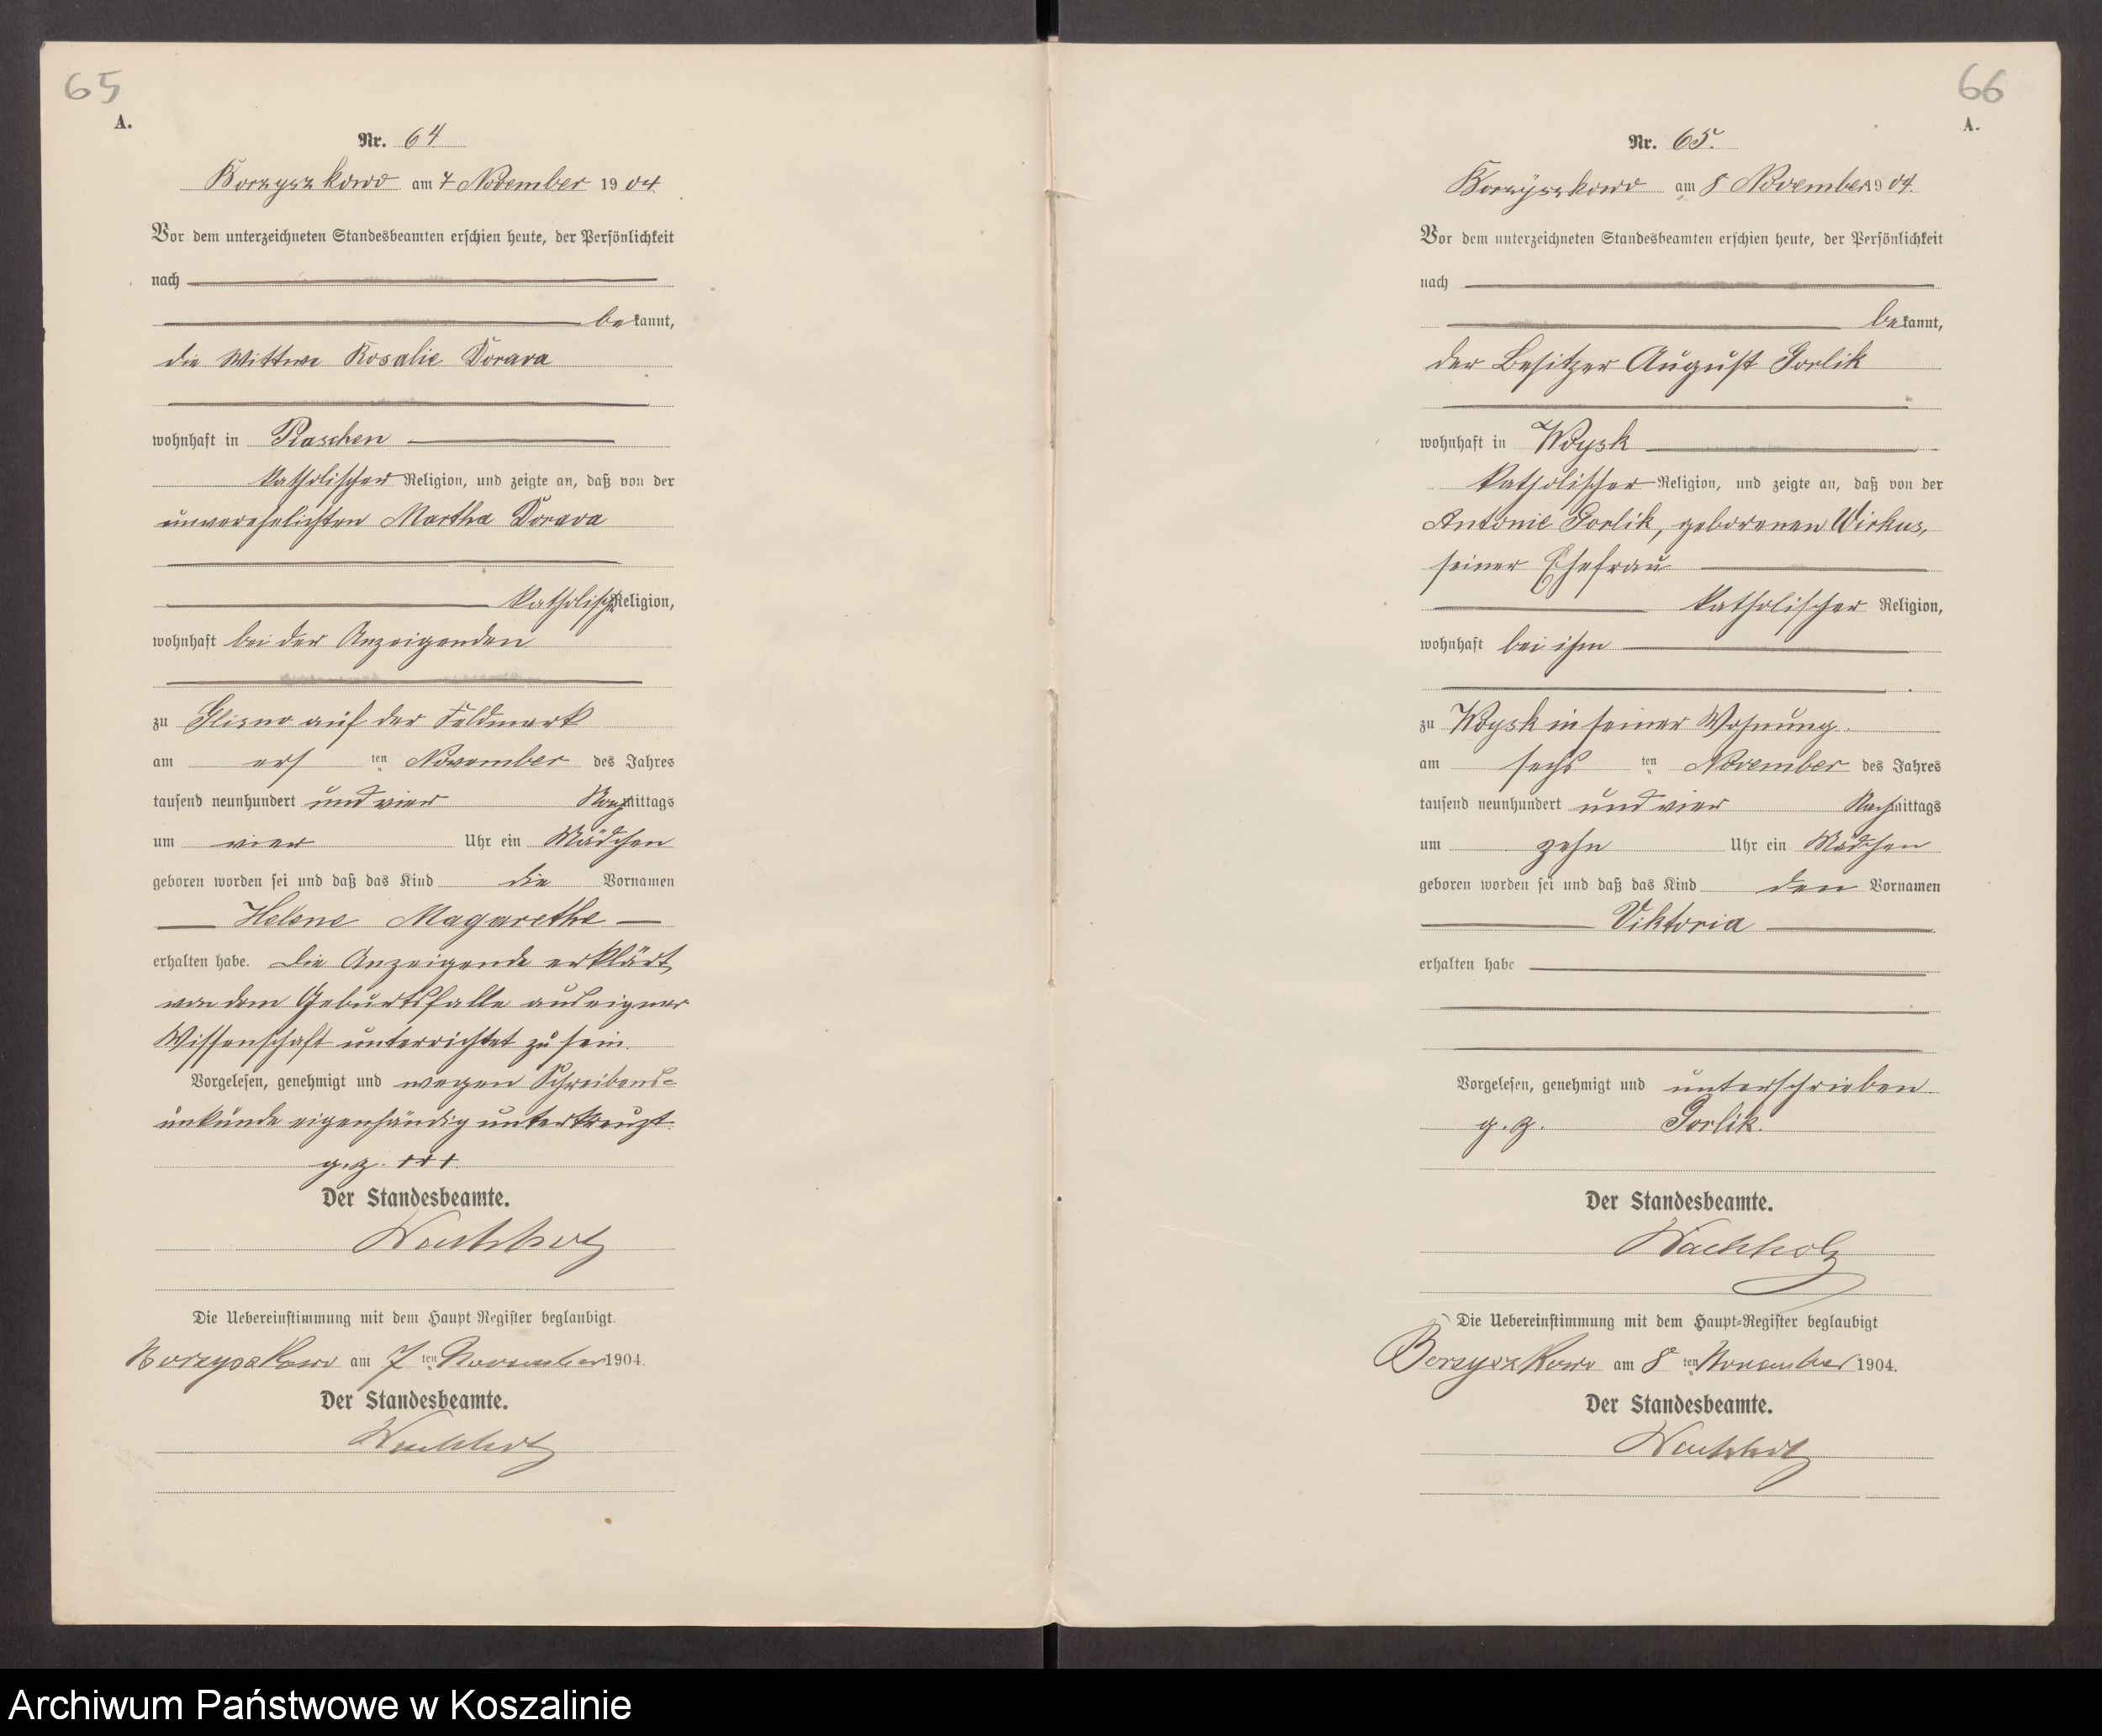 65
A.
Nr. 64
Borzyszkowo am 7 November 1904.
Vor dem unterzeichneten Standesbeamten erschien heute, der Persönlichkeit
nach
bekannt,
die Wittwe Rosalie Dorava
wohnhaft in Piaschen
katholischer Religion, und zeigte an, daß von der
unverehelichten Martha Dorava
katholisch Religion,
wohnhaft bei der Anzeigenden
zu Glisno auf der Feldmark
am ersten November des Jahres
tausend neunhundert und vier mittags
um vier Uhr ein Mädchen
geboren worden sei und daß das Kind die Vornamen
Helene Magarethe
erhalten habe. Die Anzeigende erklärt,
von dem Geburtsfalle aus eigner
Wissenschaft unterrichtet zu sein.
Vorgelesen, genehmigt und wegen Schreibens-
unkunde eigenhändig unterkreuzt.
g. z. +++
Der Standesbeamte.
Wachholz
Die Uebereinstimmung mit dem Haupt-Register beglaubigt.
Borzyszkowo am 7ten November 1904.
Der Standesbeamte.
Wachholz
66
A.
Nr. 65.
Borzyszkowo am 8 November 1904.
Vor dem unterzeichneten Standesbeamten erschien heute, der Persönlichkeit
nach
bekannt,
der Besitzer August Gorlik
wohnhaft in Woysk
katholischer Religion, und zeigte an, daß von der
Antonie Gorlik, geborenen Wirkus,
seiner Ehefrau
katholischer Religion,
wohnhaft bei ihm
zu Woysk in seiner Wohnung
am sechsten November des Jahres
tausend neunhundert und vier Nachmittags
um zehn Uhr ein Mädchen
geboren worden sei und daß das Kind den Vornamen
Viktoria
erhalten habe
Vorgelesen, genehmigt und unterschrieben
g. z. Gorlik.
Der Standesbeamte.
Wachholz
Die Uebereinstimmung mit dem Haupt-Register beglaubigt
Borzyszkowo am 8ten November 1904.
Der Standesbeamte.
Wachholz
Archiwum Państwowe w Koszalinie